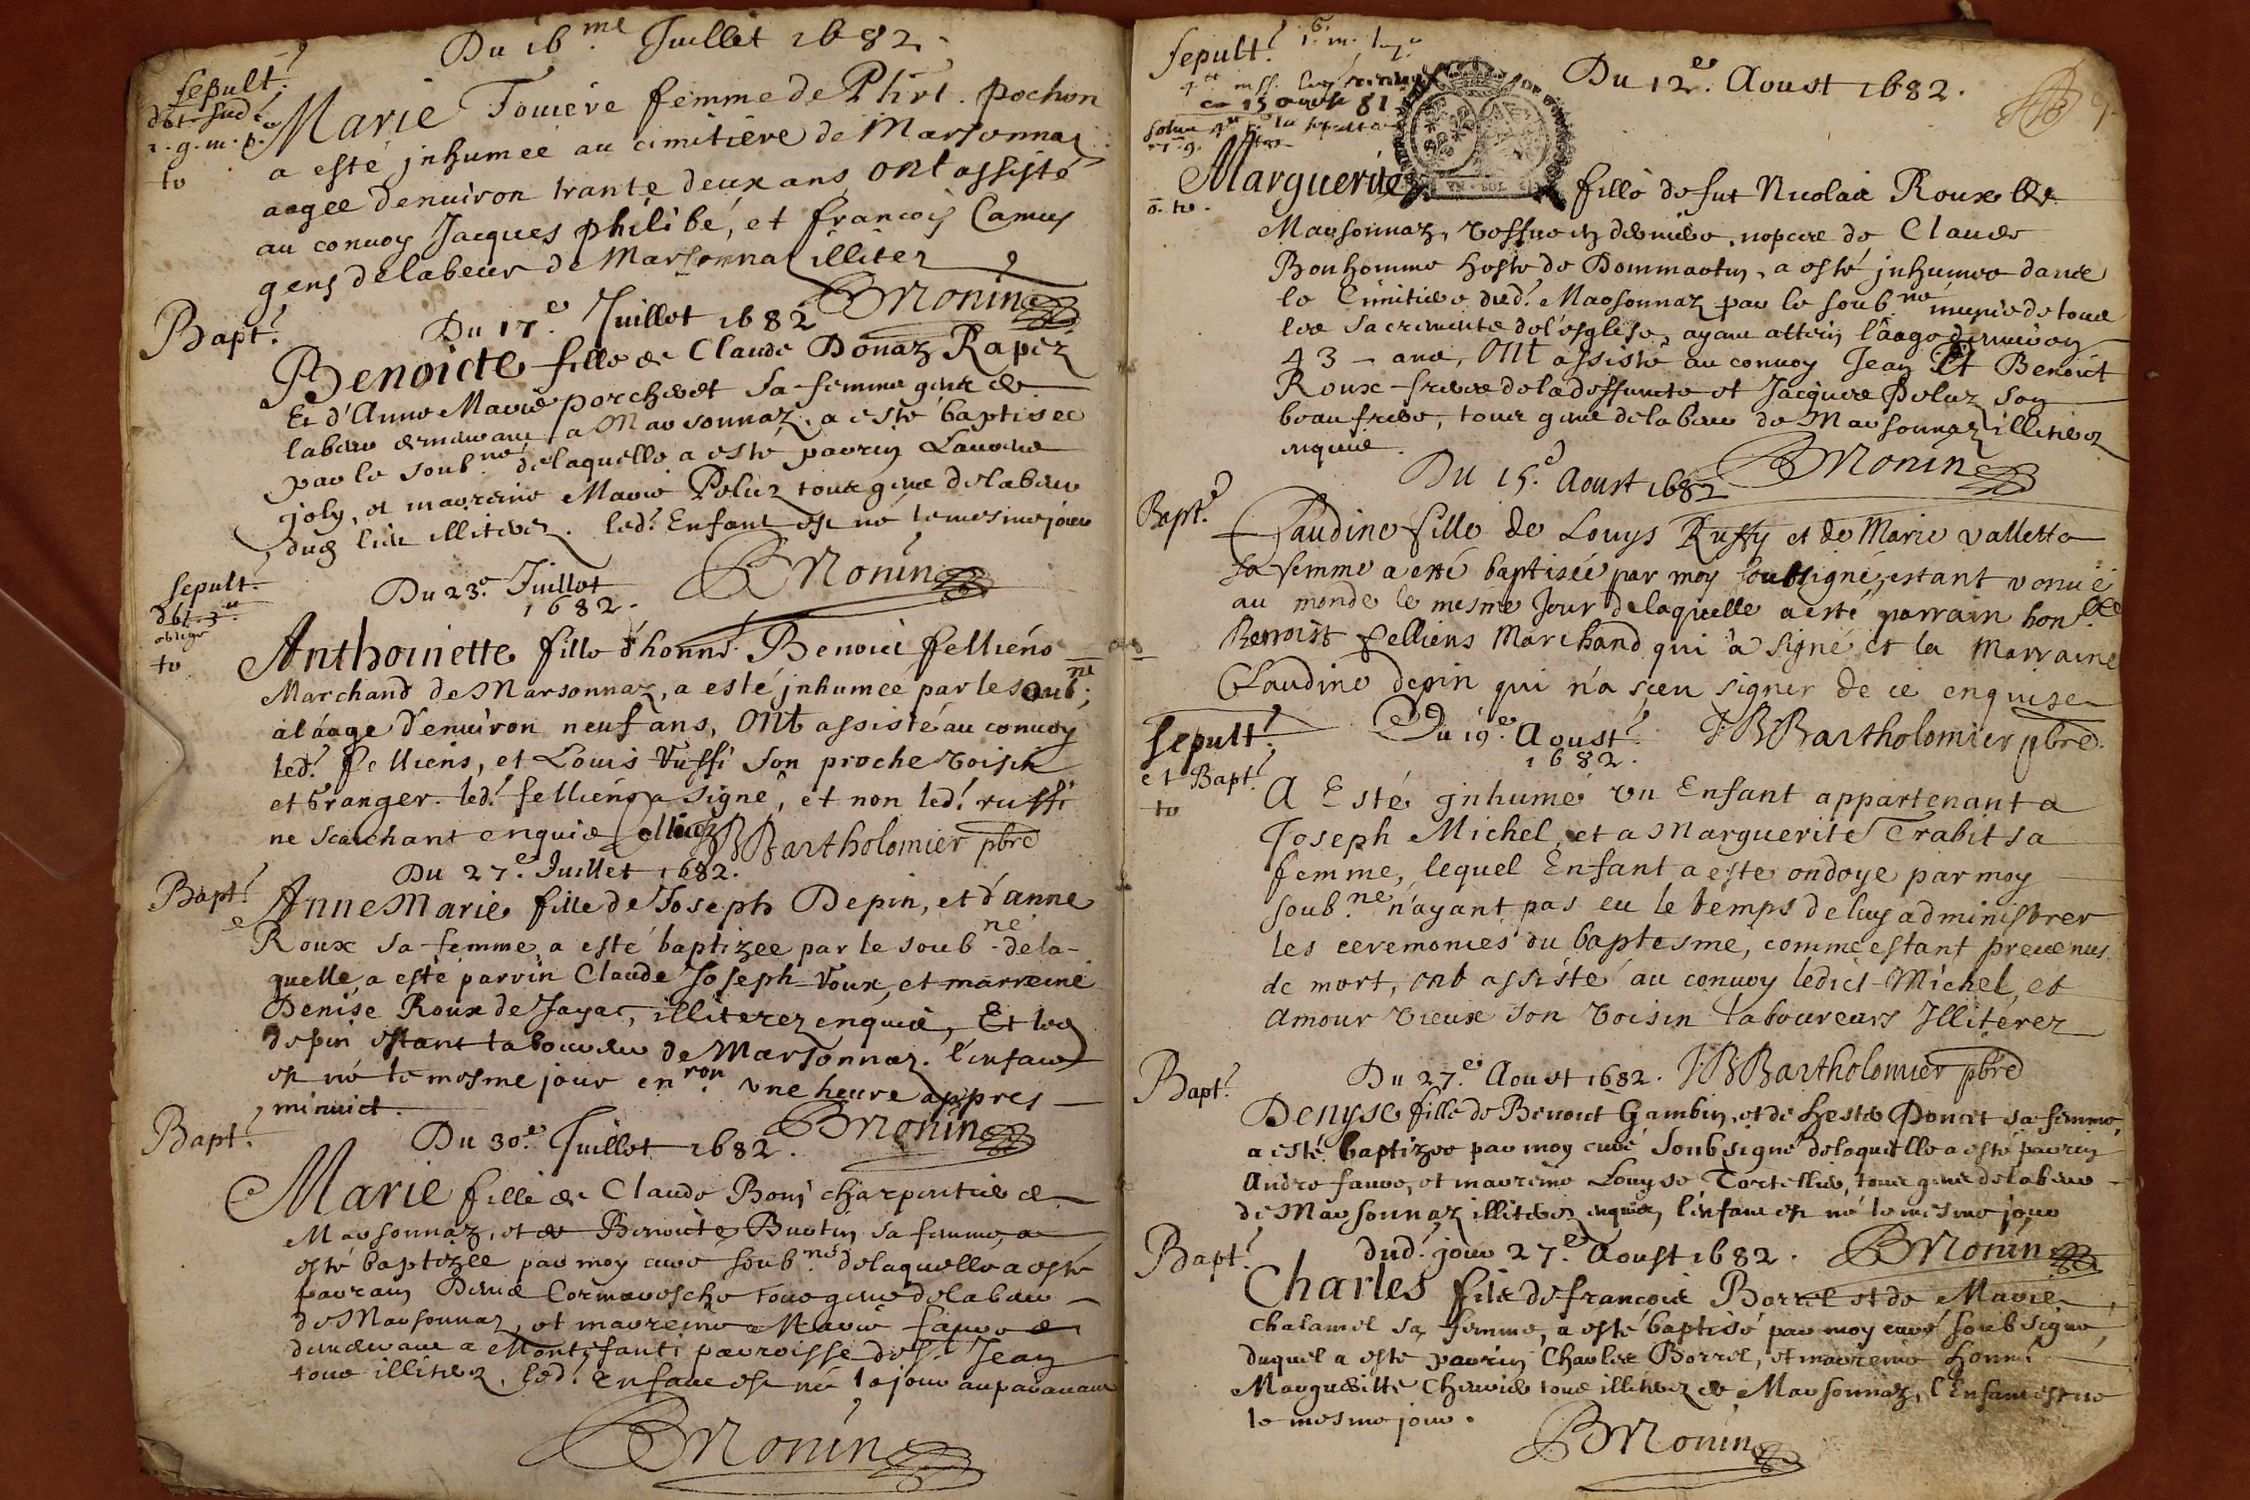 Du 16.me Juillet 1682.
Sepult.
Marie femme de Phirt. pochon
a esté jnhumée au cimitiere de Marsonnaz
to
aagee denuiron trante deux ans ont assisté
au conuoy Jacques philibé, et françois Camus
gens de labeur de Marsonnaz illiter
BMonin
Bapt.
Du 17.e Juillet 1682
Benoicte fille de Claude Donaz Rapez
Et d'Anne Marie porcheret sa femme gens de
labeur demeurant a Marsonnaz, a esté baptisee
par le soub.né de laquelle a esté parrin
joly, et marreine Marie Peluz tous gens de labeur
dud. lieu illiterez. led. Enfant est né le mesme jour
BMonin
Sepult.
Du 23.e Juillet
1682.
to
Anthoinette fille d'honn. Benoict felliens
Marchand de Marsonnaz, a esté jnhumeé par le soub.né
a l'áage d'enuiron neuf ans, ont assisté au conuoy
led. felliens, et Louis Russi son proche voisin
et granger. led. felliens a signé, et non led. russi
ne scachant enquis felliens JBBartholomier pbre
Du 27.e Juillet 1682.
Bapt.
Anne Marie fille de Joseph Depin, et d'anne
Roux sa femme, a esté baptizee par le soub.né de la-
quelle, a esté parrin Claude Joseph Roux, et marreine
Denise Roux de Jayat, illiterez enquis, Et led
depin estant laboureur de Marsonnaz. l'enfant
est né le mesme jour en.ron vne heure appres
minuict.
BMonin
Bapt.
Du 30.e Juillet 1682.
Marie fille de Claude Bonj charpentier de
Marsonnaz, et de Benoicte Buatin sa femme, a
esté baptizee par moy curé soub.né de laquelle a esté
parrain Denis Cormaresche tous gens de labeur
de Marsonnaz, et marreine Marie faure
demeurant a Montifanti parroisse de S. Jean
tous illiterez. led. enfant est né le jour auparauant
BMonin
Sepult.
Du 12.e Aoust 1682.
9
Marguerite fille de fut Nicolas Roux de
Marsonnaz, de Claude
Bonhomme hoste de Dommartin, a esté jnhumee dans
le Cimitiere dud. Marsonnaz par le soub.né munie de tous
les sacrements de l'esglise, ayant attein l'âage denuiron
43 ans, ont assisté au conuoy Jean Et Benoict
Roux freres de la deffuncte et Jacques Peluz son
beau frere, tous gens de labeur de Marsonnaz illiterez
enquis.
BMonin
Du 15.e Aoust 1682
Bapt.
Claudine fille de Louys Ruffy et de Marie vallette
sa femme a esté baptisée par moy soubsigné, estant venuë
au monde le mesme Jour de laquelle a esté parrain hon.ble
Benoist felliens Marchand qui a signé et la Marraine
Claudine depin qui n'a sceu signer de ce enquise
JBBartholomier pbre.
Sepult.
et Bapt.
to
Du 19.e Aoust
1682.
A Esté jnhumé vn Enfant appartenant a
Joseph Michel, et a Marguerite Trabit sa
femme, lequel Enfant a esté ondoye par moy
soub.né n'ayant pas eu le temps de luy administrer
les ceremonies du baptesme, comme estant preuenus
de mort, ont assisté au conuoy ledict Michel, et
Amour Vieux son voisin laboureurs Illiterez
JBBartholomier pbre
Bapt.
Du 27.e Aoust 1682.
Denyse fille de Benoict Gambin, et de Hester Poncet sa femme,
a esté baptizee par moy curé soubsigné de laquelle a esté parrin
Andre faure, et marreine Louyse Tortellier, tous gens de labeur
de Marsonnaz illiterez enquis, l'enfant est né le mesme jour
BMonin
Bapt.
dud. jour 27.e Aoust 1682.
Charles fils de francois Borrel et de Marie
Chatamel sa femme, a esté baptisé par moy curé soubsigné,
duquel a esté parrin Charles Borrel, et marreine honn.
Margueritte Cheurier tous illiterez de Marsonnaz, l'Enfant est né
le mesme jour.
BMonin